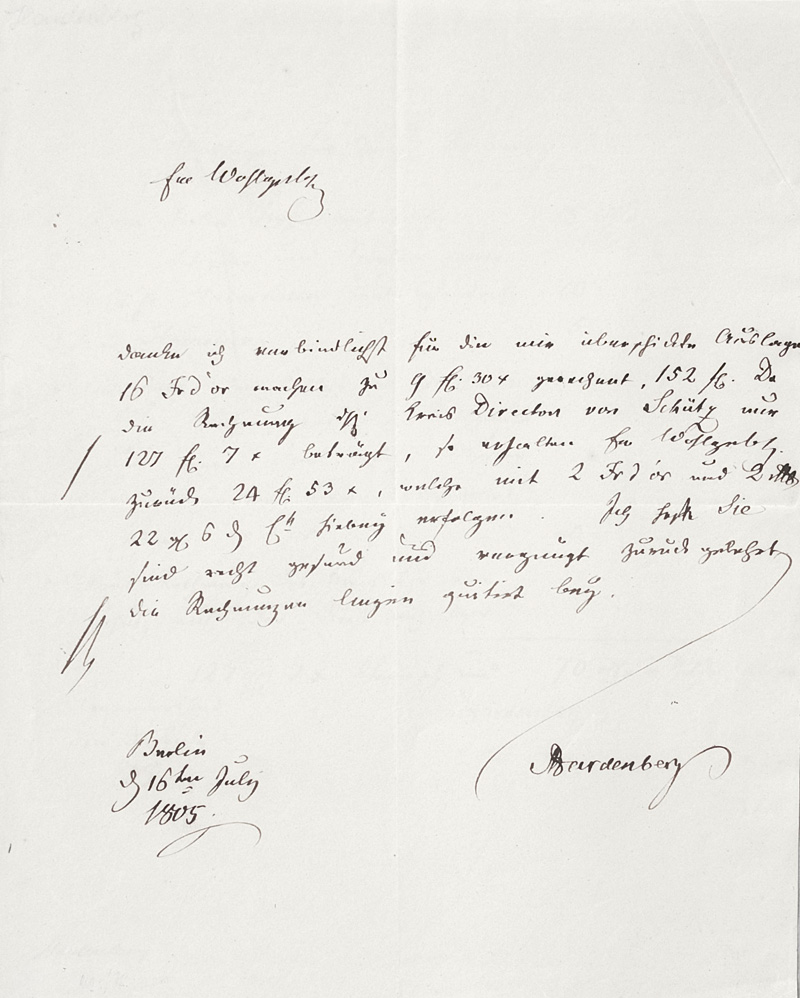 Ew Wohlgeb.
danke ich verbindlichst für die mir überschickte Auslage
16 Frd'or machen zu 9 fl. 30 x gerechnet, 152 fl. Da
die Rechnung des Kreis Director von Schütz nur
127 fl. 7 x beträgt, so erhalten Ew Wohlgeb.
zurück 24 fl. 53 x, welche mit 2 Frd'or und
22 gr 6 d hiebey erfolgen. Ich hoffe Sie
sind recht gesund und vergnügt zurückgekehrt
die Rechnungen liegen quitirt bey.
Berlin
d 16ten July
1805.
Hardenberg